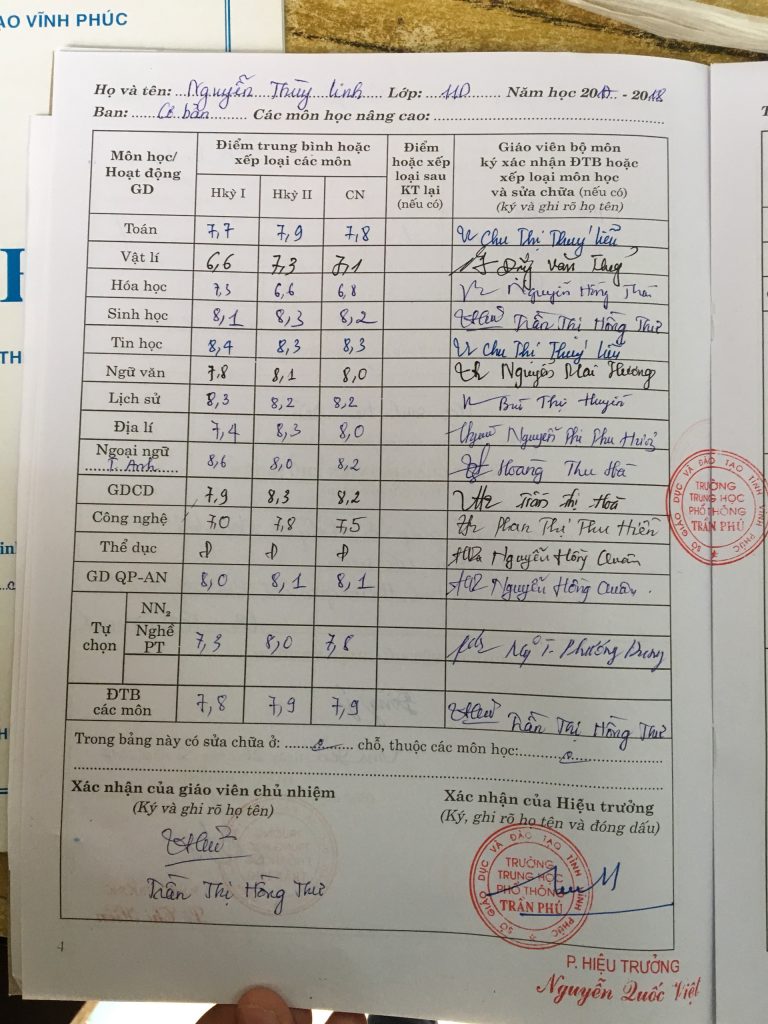 AO VĨNH PHÚC
Họ và tên: Nguyễn Thùy Linh Lớp: 11D Năm học 2017 - 2018
Ban: Cơ bản Các môn học nâng cao:
Môn học/ Hoạt động GD Điểm trung bình hoặc xếp loại các môn Điểm hoặc xếp loại sau KT lại (nếu có) Giáo viên bộ môn ký xác nhận ĐTB hoặc xếp loại môn học và sửa chữa (nếu có) (ký và ghi rõ họ tên)
Hkỳ I Hkỳ II CN
Toán 7,7 7,9 7,8 Chu Thị Thuý Liễu
Vật lí 6,6 7,3 7,1 Văn
Hóa học 7,3 6,6 6,8 Nguyễn Hồng
Sinh học 8,1 8,3 8,2 Trần Thị Hồng Thư
Tin học 8,4 8,3 8,3 Chu Thị Thuý Liễu
Ngữ văn 7,8 8,1 8,0 Nguyễn Mai Hương
Lịch sử 8,3 8,2 8,2 Bùi Thị Huyền
Địa lí 7,4 8,3 8,0 Nguyễn Thị Thu
Ngoại ngữ T. Anh 8,6 8,0 8,2 Hoàng Thu Hà
GDCD 7,9 8,3 8,2 Trần Thị Hoà
Công nghệ 7,0 7,8 7,5 Phan Thị Thu Hiền
Thể dục Đ Đ Đ Nguyễn Hồng Quân
GD QP-AN 8,0 8,1 8,1 Nguyễn Hồng Quân
Tự chọn
NN₂
Nghề PT 7,3 8,0 7,8 Ngô T. Phương Dung
ĐTB các môn 7,8 7,9 7,9 Trần Thị Hồng Thư
Trong bảng này có sửa chữa ở: 0 chỗ, thuộc các môn học: 0
Xác nhận của giáo viên chủ nhiệm
(Ký và ghi rõ họ tên)
Trần Thị Hồng Thư
Xác nhận của Hiệu trưởng
(Ký, ghi rõ họ tên và đóng dấu)
SỞ GIÁO DỤC VÀ ĐÀO TẠO TỈNH VĨNH PHÚC
TRƯỜNG
TRUNG HỌC
PHỔ THÔNG
TRẦN PHÚ
P. HIỆU TRƯỞNG
Nguyễn Quốc Việt
4
SỞ GIÁO DỤC VÀ ĐÀO TẠO TỈNH VĨNH PHÚC
TRƯỜNG
TRUNG HỌC
PHỔ THÔNG
TRẦN PHÚ